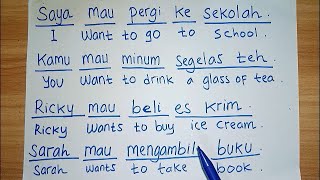 Saya mau pergi ke sekolah.
I want to go to school.
Kamu mau minum segelas teh.
You want to drink a glass of tea.
Ricky mau beli es krim.
Ricky wants to buy ice cream.
Sarah mau mengambil buku.
Sarah wants to take book.